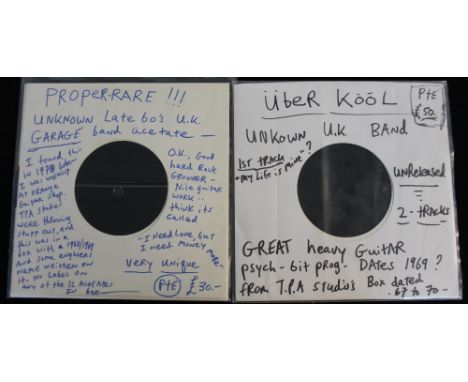 PROPER-RARE !!!
UNKNOWN Late 60's U.K.
GARAGE band acetate —
I found this
in 1978 when
I was working
at ORANGE
Guitar shop.
TPA studios
were throwing
stuff out, and
this was in a
box with a 1968/1969
And some engineers
name written on
it. No Label on
any of the 12 Acetates
In box
O.K., Good
hard Rock
GROOVER —
Nice guitar
work..
think its
called
"I need Love but
I need Money
VERY Unique
PtE £30.-
ÜBER KÖÖL
PtE
£50.
UNKOWN U.K BAND
1ST TRACK
"my Life is mine"?
UNReleased
=
2 - TRACKS
GREAT heavy GuitAR
psych - bit prog - DAtes 1969 ?
from T.P.A Studio's Box dated
67 to 70 -